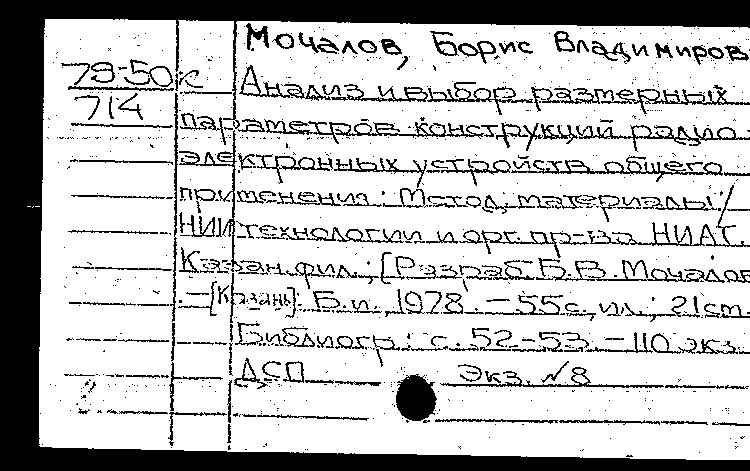 Мочалов, Борис Владимиров
79-50к Анализ и выбор размерных
714
параметров конструкций радио
электронных устройств общего
применения: Метод. материалы /
НИИ технологии и орг. пр-ва НИАТ.
Казан. фил.; [Разраб. Б.В. Мочалов
. — [Казань]: Б.и., 1978. — 55с., ил.; 21см.
Библиогр.: с. 52-53. — 110 экз.
ДСП Экз. №8